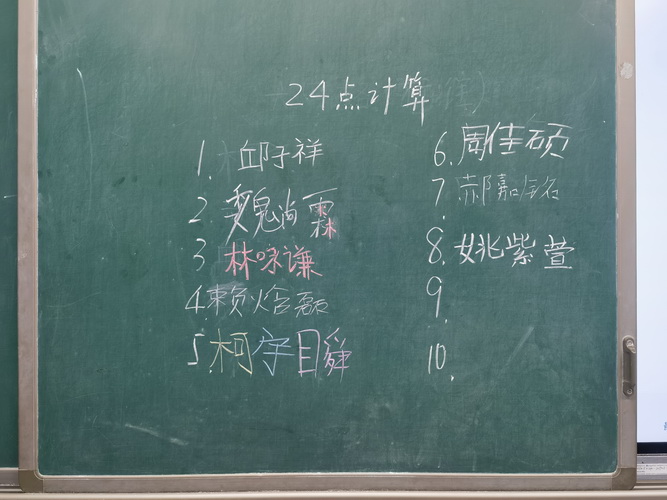 24点计算
1. 邱子祥
2. 魏尚霖
3 林咏谦
4. 赖焓磊
5. 柯宇瞬
6. 周佳硕
7. 郝嘉铭
8. 姚紫萱
9.
10.